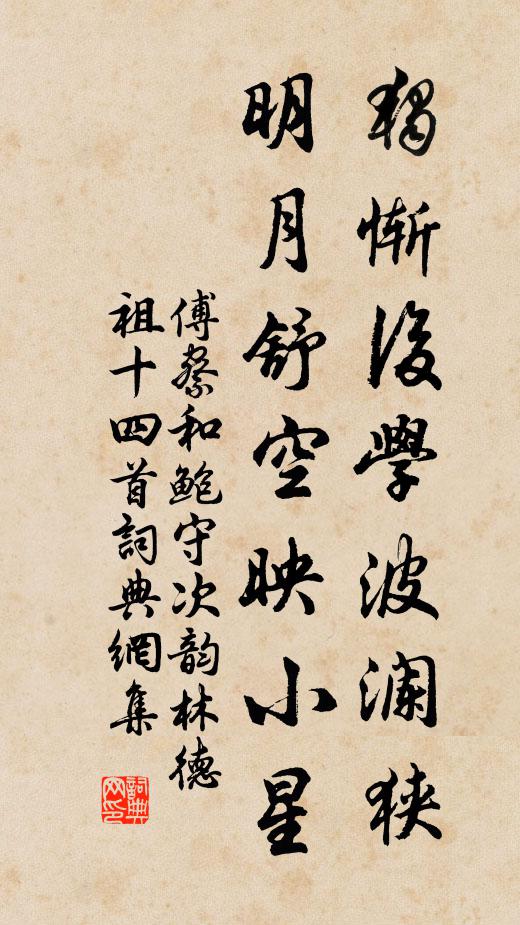 獨慚後學波瀾狹
明月舒空映小星
傅察和鮑守次韵林德
祖十四首詞典網集
詞典网印